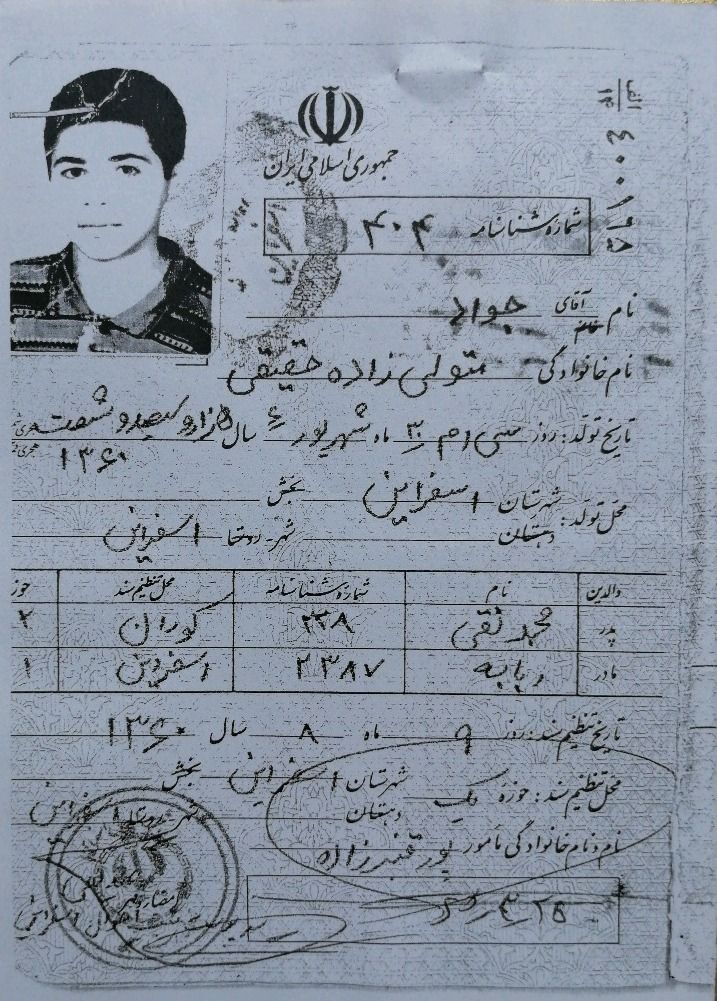 جمهوری اسلامی ایران
الف
۱۳
شماره شناسنامه ۴۰۴
نام آقای خانم جواد
نام خانوادگی متولی زاده حقیقی
تاریخ تولد: روز سی ام ۳۰ ماه شهریور ۶ سال هزار و سیصد و شصت
۱۳۶۰
محل تولد: شهرستان اسفراین بخش
دهستان شهر-روستا اسفراین
والدین نام شماره شناسنامه محل تنظیم سند حوز
پدر محمد تقی ۲۳۸ کوران ۲
مادر ربابه ۲۳۸۷ اسفراین ۱
تاریخ تنظیم سند: روز ۹ ماه ۸ سال ۱۳۶۰
محل تنظیم سند: حوزه یک شهرستان اسفراین بخش
دهستان شهر روستا اسفراین
نام و نام خانوادگی مأمور پور قنبرزاده